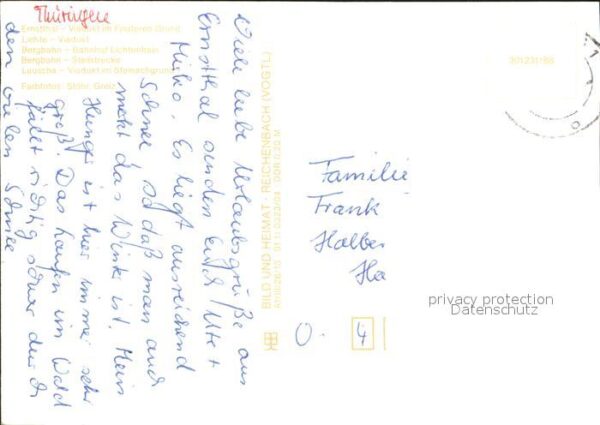 Thüringen
Ernstthal - Viadukt im Finsteren Grund
Lichte - Viadukt
Bergbahn - Bahnhof Lichtenhain
Bergbahn - Steilstrecke
Lauscha - Viadukt im Steinachgrund
Farbfotos: Stöhr, Greiz
301231/88
Viele liebe Urlaubsgrüße aus
Ernstthal senden Euch Ute +
Mirko. Es liegt ausreichend
Schnee, so daß man auch
merkt das Winter ist. Mein
Hunger ist hier immer sehr
groß. Das Laufen im Wald
fällt richtig schwer durch
den vielen Schnee
BILD UND HEIMAT · REICHENBACH (VOGTL)
Familie
Frank
Halber
Ha
privacy protection
Datenschutz
O-
4